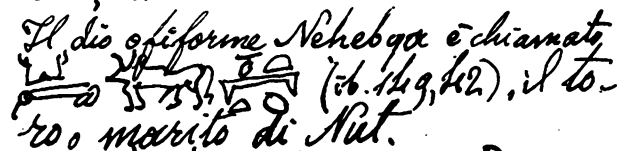 Il dio ofiforme Nehebqa è chiamato
(ib. 149, 42), il to-
ro, o marito di Nut.